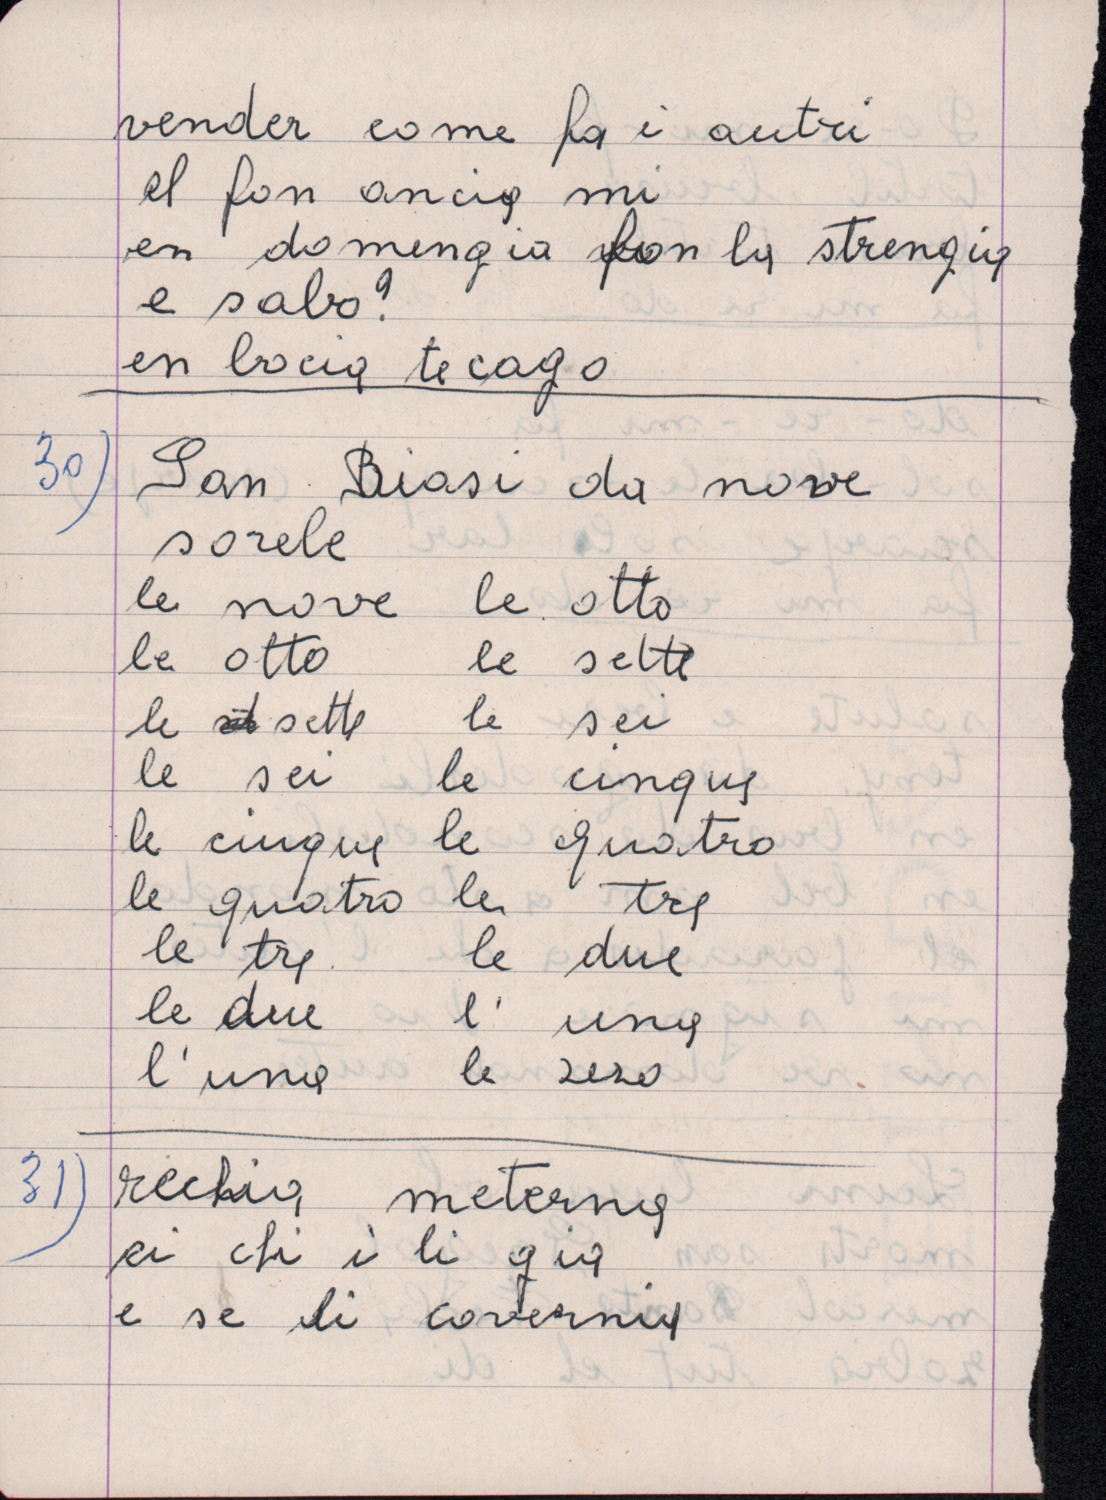 vender come fa i autri
el fon ancia mi
en domengia fon la strengia
e sabo?
en bocia te cago
30) San Biasi da nove
sorele
le nove le otto
le otto le sette
le sette le sei
le sei le cinque
le cinque le quatro
le quatro le tre
le tre le due
le due l' una
l'una le zero
31) rechia meterna
ei chi i li gia
e se li covernia